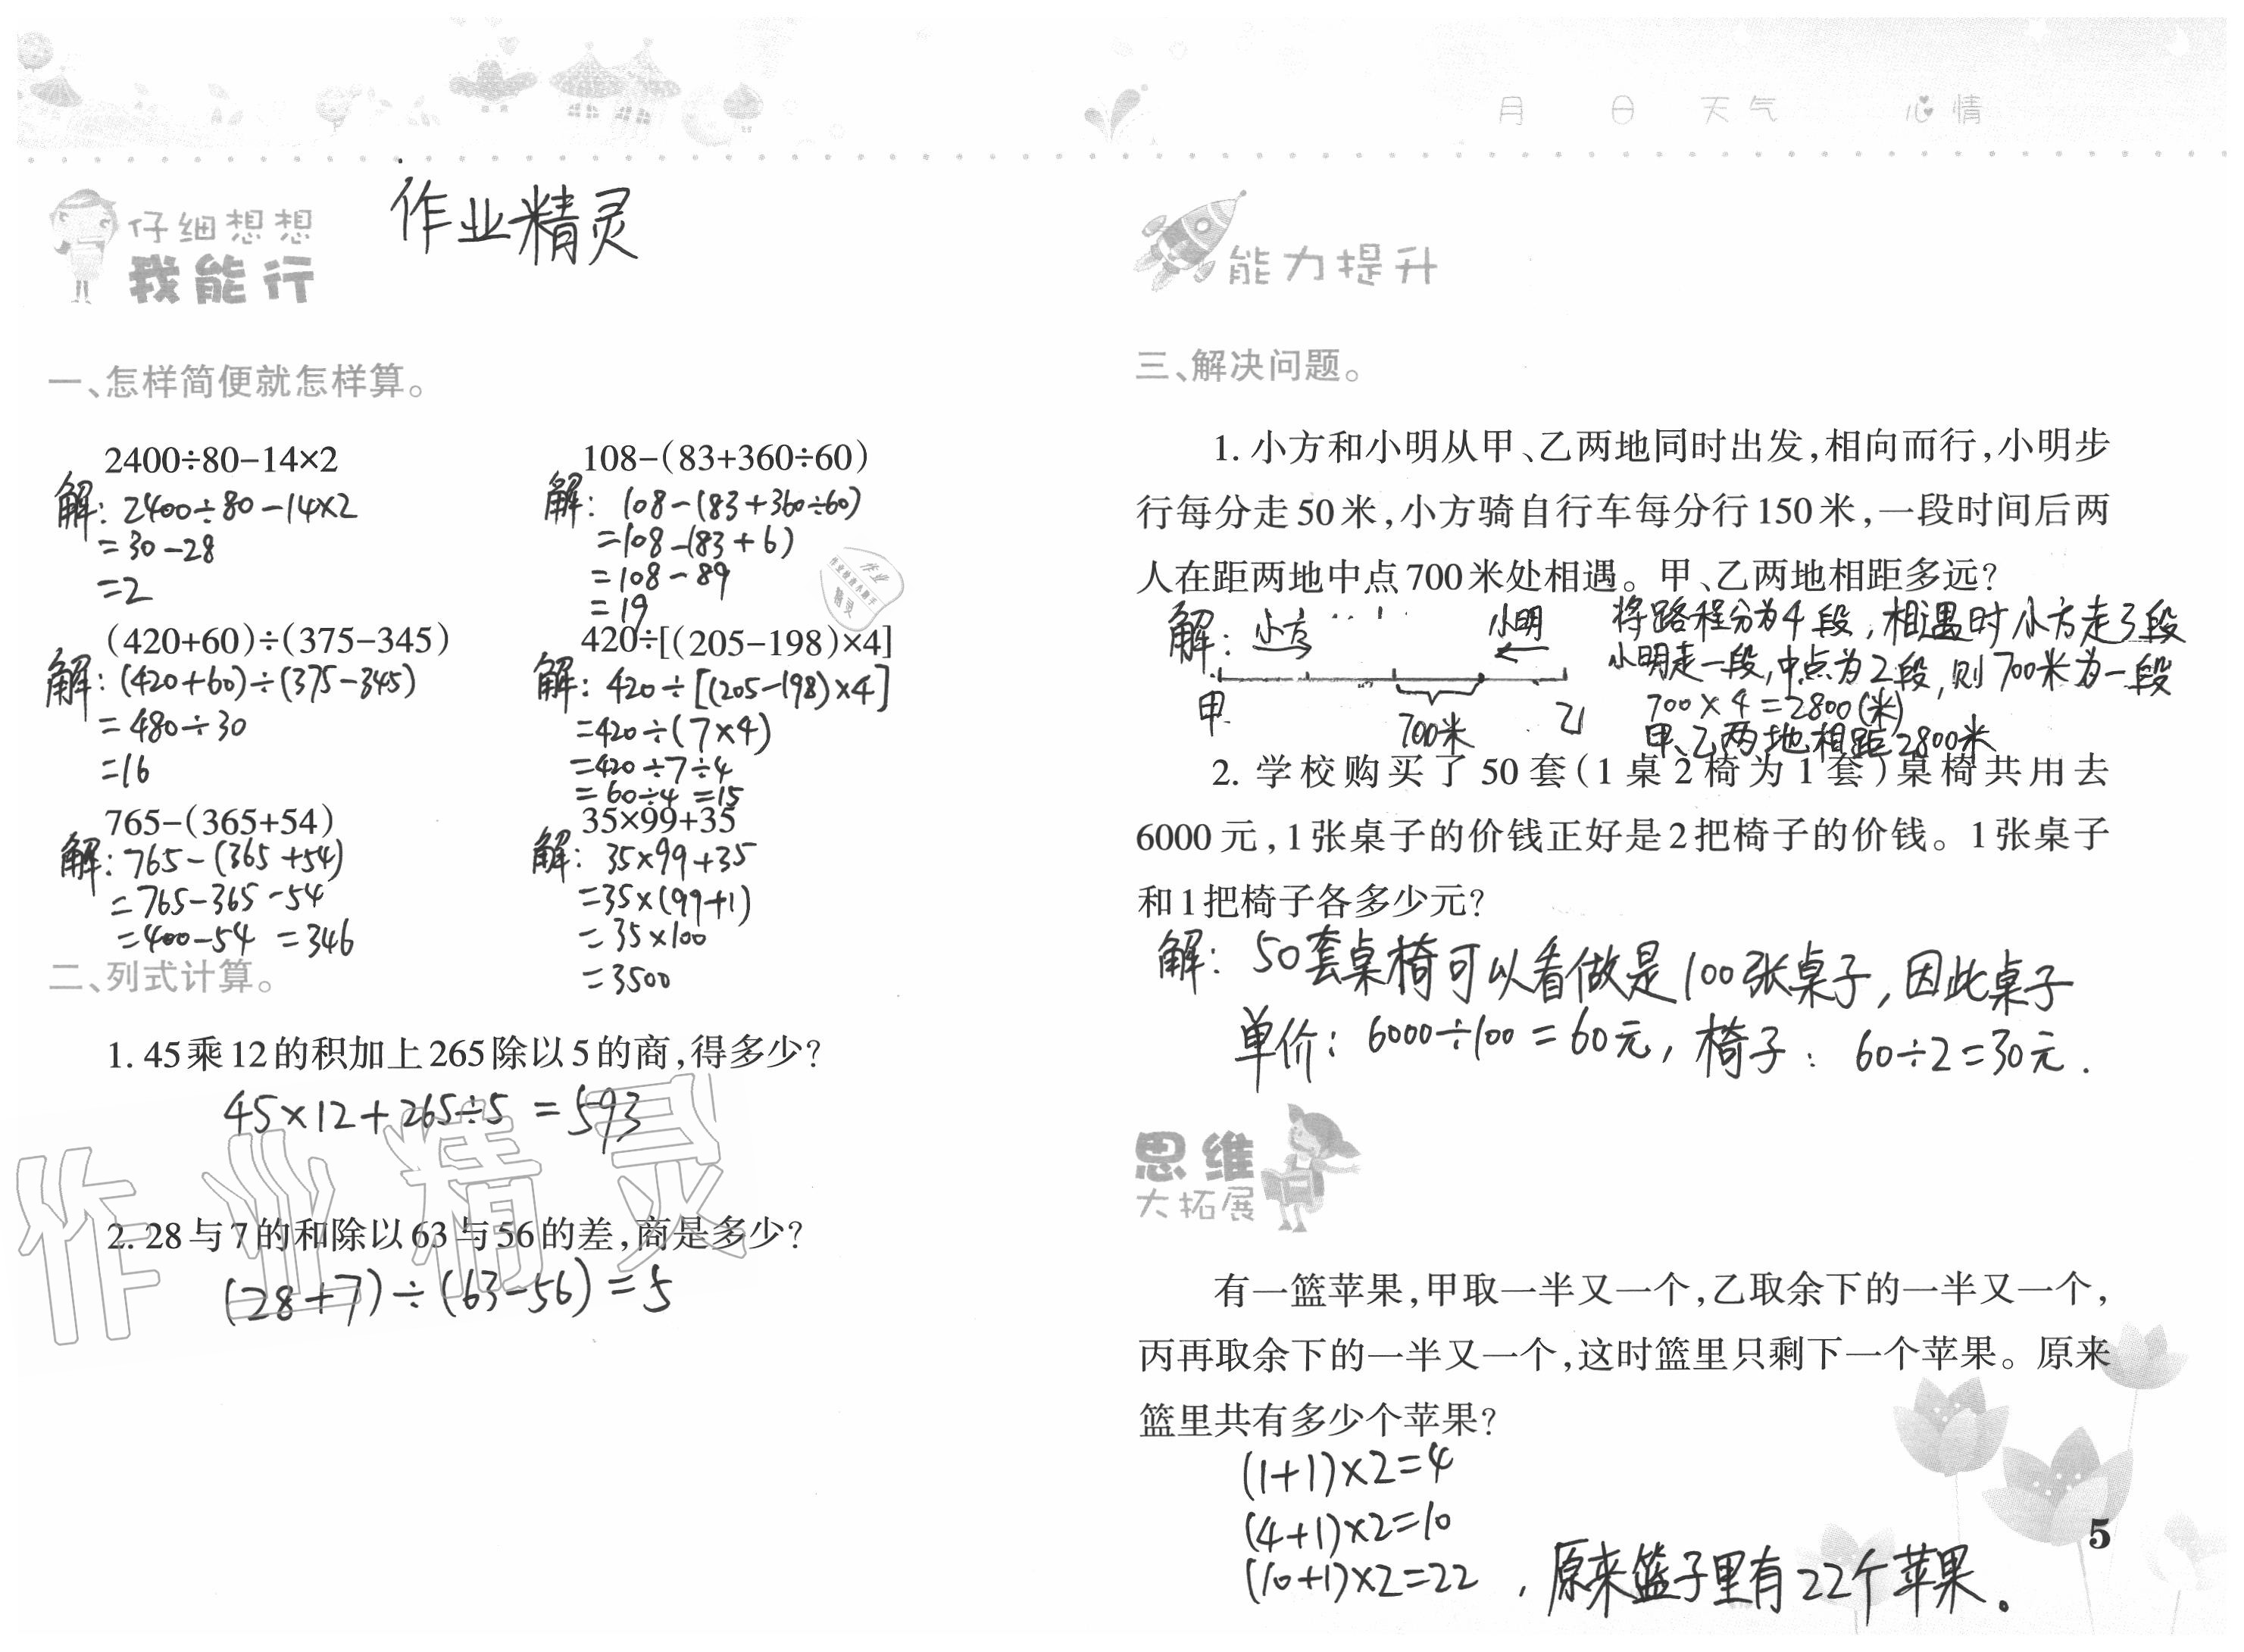 月 日 天气 心情
仔细想想
我能行
作业精灵
一、怎样简便就怎样算。
2400÷80-14×2
解: 2400÷80-14×2
=30-28
=2
108-(83+360÷60)
解: 108-(83+360÷60)
=108-(83+6)
=108-89
=19
(420+60)÷(375-345)
解: (420+60)÷(375-345)
=480÷30
=16
420÷[(205-198)×4]
解: 420÷[(205-198)×4]
=420÷(7×4)
=420÷7÷4
=60÷4 =15
765-(365+54)
解: 765-(365+54)
=765-365-54
=400-54 =346
35×99+35
解: 35×99+35
=35×(99+1)
=35×100
=3500
二、列式计算。
1. 45乘12的积加上265除以5的商,得多少?
45×12+265÷5 =593
2. 28与7的和除以63与56的差,商是多少?
(28+7)÷(63-56)=5
作业精灵
作业
精灵
能力提升
三、解决问题。
1. 小方和小明从甲、乙两地同时出发,相向而行,小明步
行每分走50米,小方骑自行车每分行150米,一段时间后两
人在距两地中点700米处相遇。甲、乙两地相距多远?
解: 小方 小明
甲 700米 乙
将路程分为4段,相遇时小方走3段
小明走一段,中点为2段,则700米为一段
700×4=2800(米)
甲、乙两地相距2800米
2. 学校购买了50套(1桌2椅为1套)桌椅共用去
6000元,1张桌子的价钱正好是2把椅子的价钱。1张桌子
和1把椅子各多少元?
解: 50套桌椅可以看做是100张桌子,因此桌子
单价: 6000÷100=60元, 椅子: 60÷2=30元.
思维
大拓展
有一篮苹果,甲取一半又一个,乙取余下的一半又一个,
丙再取余下的一半又一个,这时篮里只剩下一个苹果。原来
篮里共有多少个苹果?
(1+1)×2=4
(4+1)×2=10
(10+1)×2=22 ,原来篮子里有22个苹果.
5